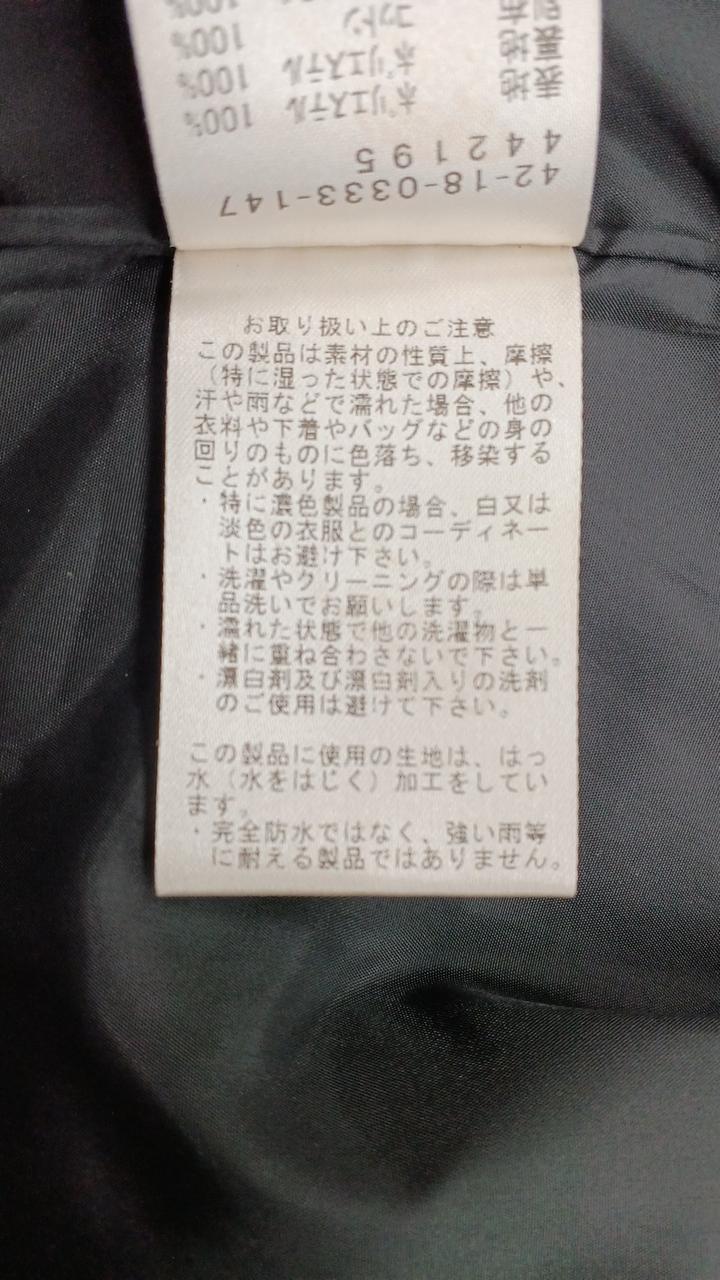 42-18-0333-147
442195
表地 ポリエステル 100%
裏地 ポリエステル 100%
別布 コットン 100%
100%
お取り扱い上のご注意
この製品は素材の性質上、摩擦
（特に湿った状態での摩擦）や、
汗や雨などで濡れた場合、他の
衣料や下着やバッグなどの身の
回りのものに色落ち、移染する
ことがあります。
・特に濃色製品の場合、白又は
淡色の衣服とのコーディネー
トはお避け下さい。
・洗濯やクリーニングの際は単
品洗いでお願いします。
・濡れた状態で他の洗濯物と一
緒に重ね合わさないで下さい。
・漂白剤及び漂白剤入りの洗剤
のご使用は避けて下さい。
この製品に使用の生地は、はっ
水（水をはじく）加工をしてい
ます。
・完全防水ではなく、強い雨等
に耐える製品ではありません。